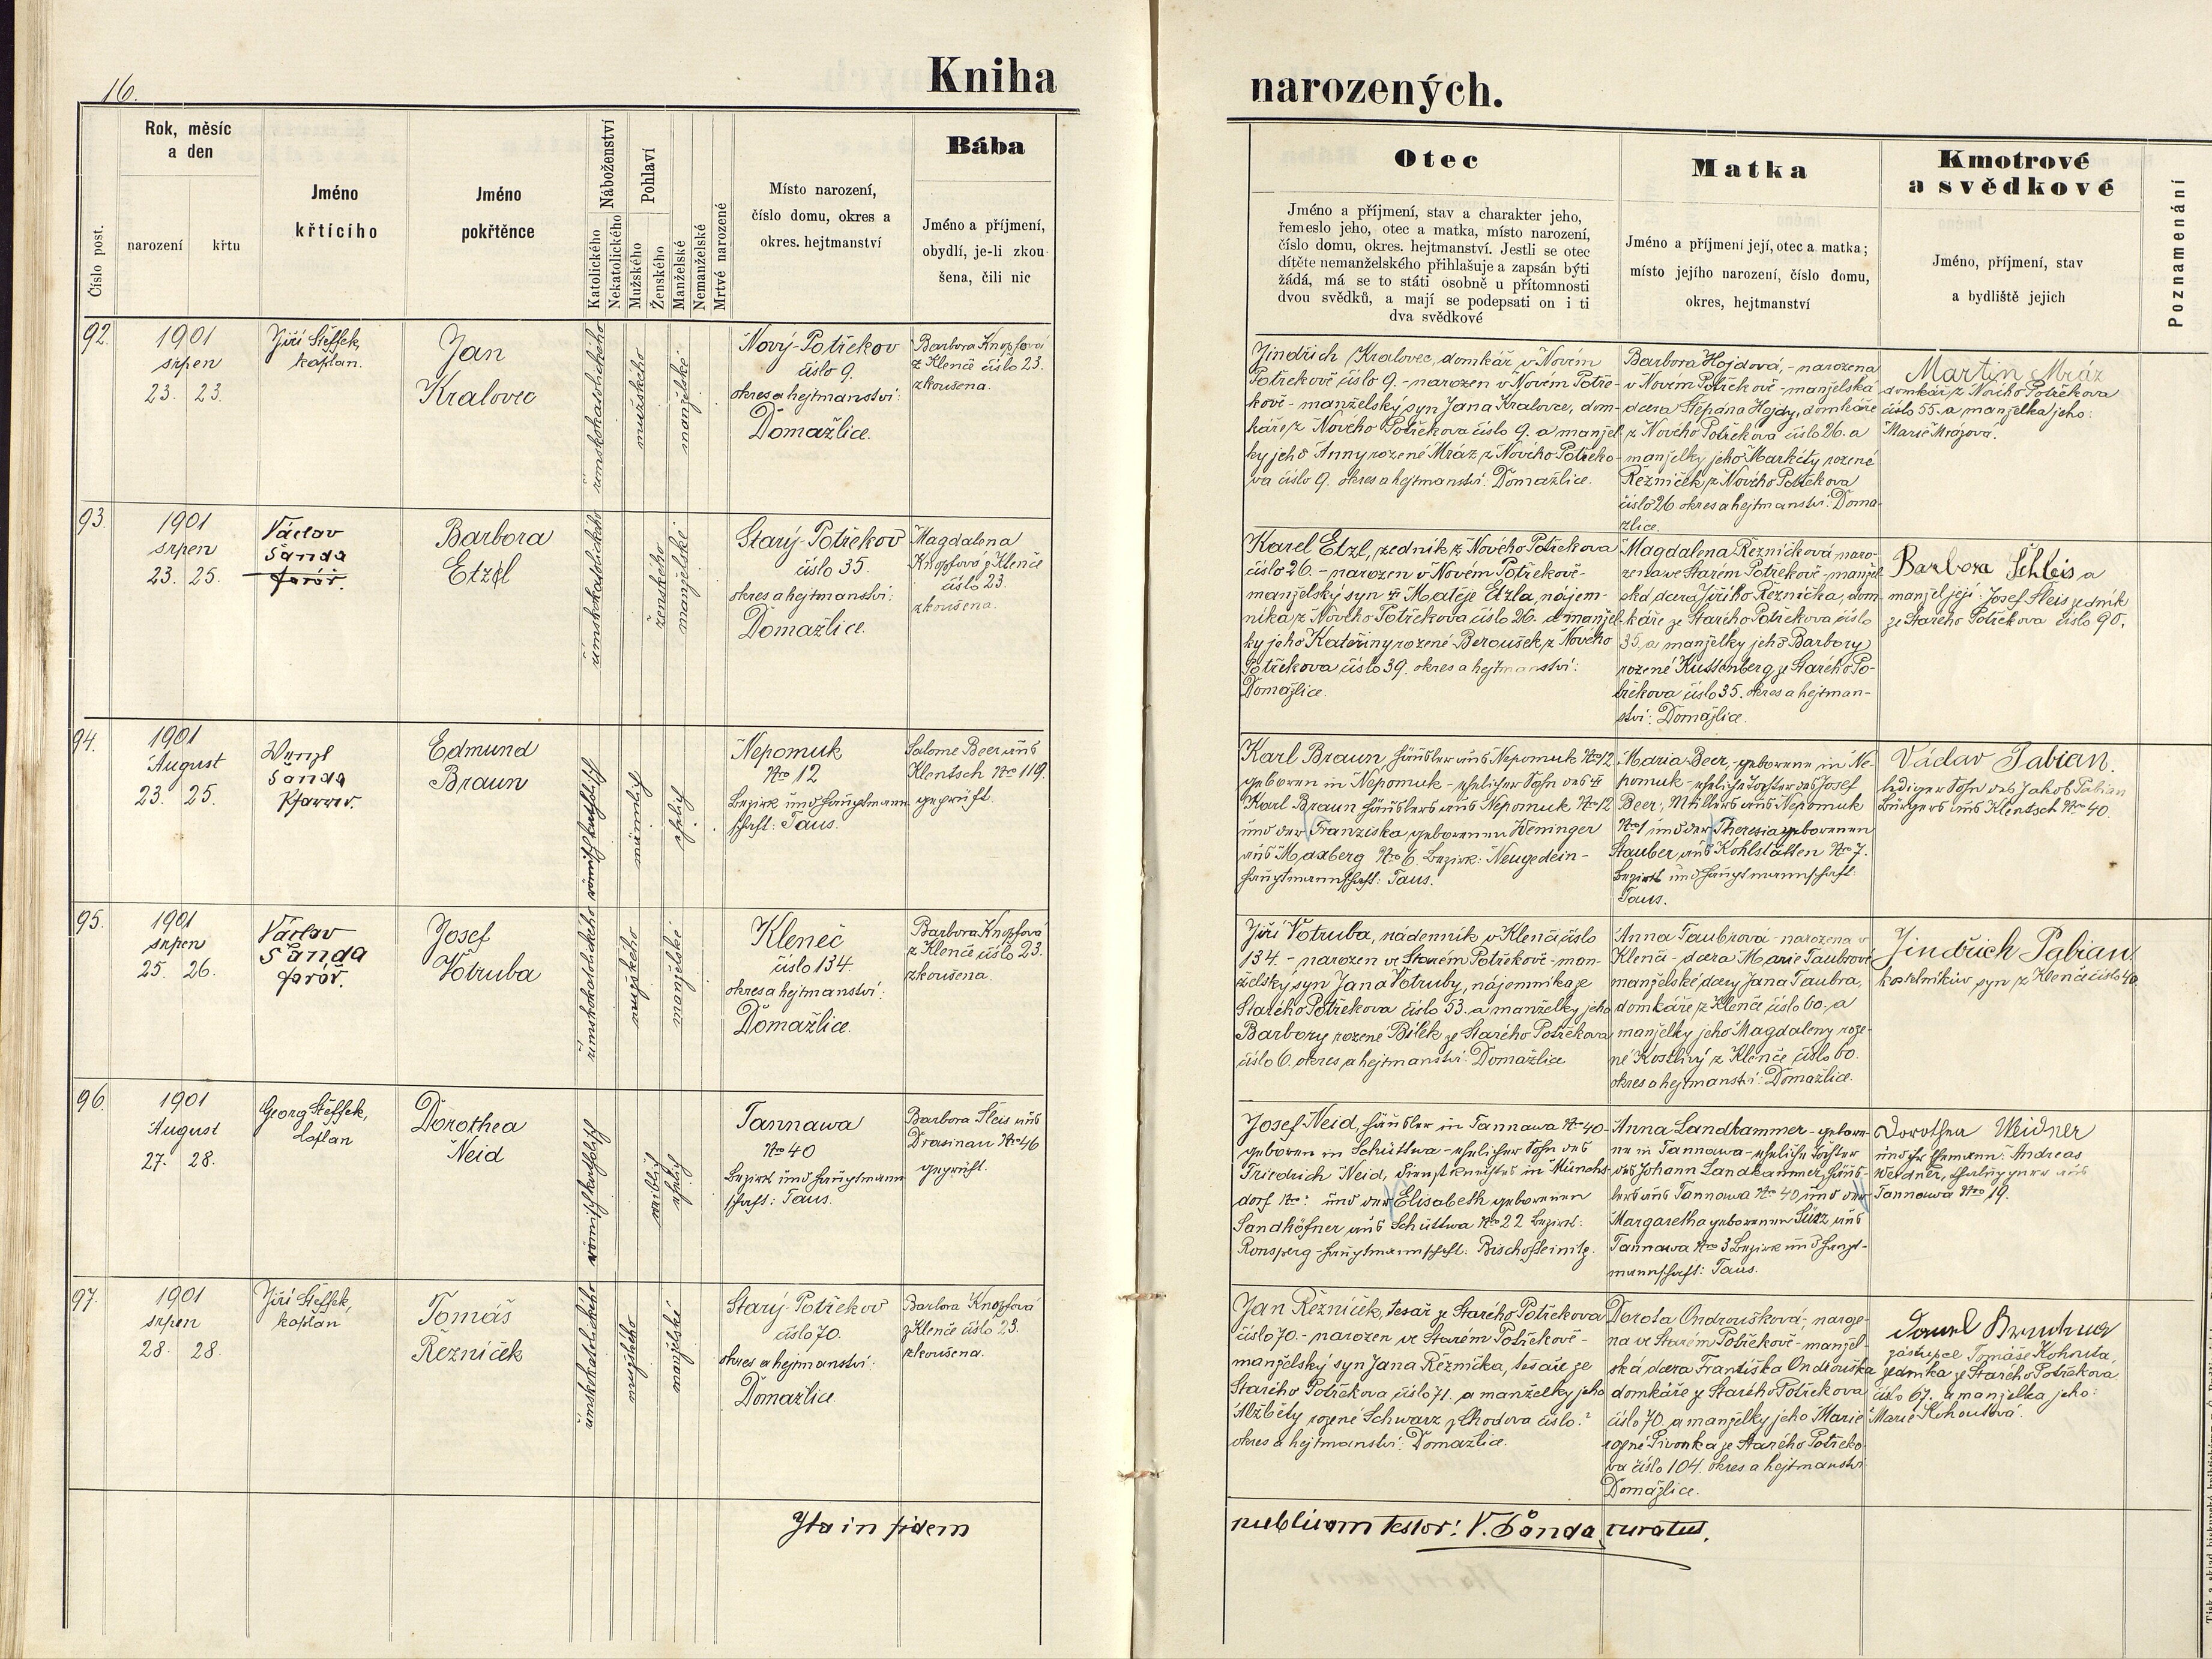 16.
Kniha
narozených.
Číslo post.
Rok, měsíc
a den
narození
křtu
Jméno
křtícího
Jméno
pokřtěnce
Náboženství
Katolického
Nekatolického
Pohlaví
Mužského
Ženského
Manželské
Nemanželské
Mrtvé narozené
Místo narození,
číslo domu, okres a
okres. hejtmanství
Bába
Jméno a příjmení,
obydlí, je-li zkou
šena, čili nic
Otec
Jméno a příjmení, stav a charakter jeho,
řemeslo jeho, otec a matka, místo narození,
číslo domu, okres. hejtmanství. Jestli se otec
dítěte nemanželského přihlašuje a zapsán býti
žádá, má se to státi osobně u přítomnosti
dvou svědků, a mají se podepsati on i ti
dva svědkové
Matka
Jméno a příjmení její, otec a matka;
místo jejího narození, číslo domu,
okres, hejtmanství
Kmotrové
a svědkové
Jméno, příjmení, stav
a bydliště jejich
Poznamenání
92.
1901
srpen
23. 23.
Jiří Steffek,
kaplan.
Jan
Kralovec
římskokatolického
mužského
manželské
Nový-Potřekov
číslo 9.
okres a hejtmanství:
Domažlice.
Barbora Knopfová
z Klenče číslo 23.
zkoušena.
Jindřich Kralovec, domkář v Novém
Potřekově číslo 9. - narozen v Novém Potře-
kově - manželský syn Jana Kralovce, dom-
káře z Nového Potřekova číslo 9. a manžel-
ky jeho Anny rozené Mráz z Nového Potřeko-
va číslo 9. okres a hejtmanství: Domažlice.
Barbora Hojdová, - narozena
v Novém Potřekově - manželská
dcera Štěpána Hojdy, domkáře
z Nového Potřekova číslo 26. a
manželky jeho Markéty rozené
Řezníček z Nového Potřekova
číslo 26. okres a hejtmanství: Doma-
žlice.
Martin Mráz
domkář z Nového Potřekova
číslo 55. a manželka jeho:
Marie Mrázová.
93.
1901
srpen
23. 25.
Václav
Šanda
farář.
Barbora
Etzl
římskokatolického
ženského
manželské
Starý-Potřekov
číslo 35.
okres a hejtmanství:
Domažlice.
Magdalena
Knopfová z Klenče
číslo 23.
zkoušena.
Karel Etzl, zedník z Nového Potřekova
číslo 26. - narozen v Novém Potřekově -
manželský syn Matěje Etzla, nájem-
níka z Nového Potřekova číslo 26. a manžel-
ky jeho Kateřiny rozené Beroušek z Nového
Potřekova číslo 39. okres a hejtmanství:
Domažlice.
Magdalena Řezníčková, naro-
zena ve Starém Potřekově - manžel-
ská dcera Jiřího Řezníčka, dom-
káře ze Starého Potřekova číslo
35. a manželky jeho Barbory
rozené Kuttenberg ze Starého Po-
třekova číslo 35. okres a hejtman-
ství: Domažlice.
Barbora Schleis a
manžel její: Josef Šleis zedník
ze Starého Potřekova číslo 90.
94.
1901
August
23. 25.
Wenzl
Šanda
Pfarrer.
Edmund
Braun
römisch katholisch
männlich
ehelich
Nepomuk
Nro 12
Bezirk und Hauptmann-
schaft: Taus.
Salome Beer aus
Klentsch Nro 119.
geprüft.
Karl Braun, Häusler aus Nepomuk Nro 12.
geboren in Nepomuk - ehelicher Sohn des
Karl Braun Häuslers aus Nepomuk Nro 12
und der Franziska geborenen Weninger
aus Maxberg Nro 6. Bezirk: Neugedein -
Hauptmannschaft: Taus.
Maria Beer, - geboren in Ne-
pomuk - eheliche Tochter des Josef
Beer, Müllers aus Nepomuk
Nro 1 und der Theresia geborenen
Stauber, aus Kohlstätten Nro 7.
Bezirk und Hauptmannschaft:
Taus.
Václav Fabian.
lediger Sohn des Jakob Fabian
Bürgers aus Klentsch Nro 40.
95.
1901
srpen
25. 26.
Václav
Šanda
farář.
Josef
Votruba
římskokatolického
mužského
manželské
Kleneč
číslo 134.
okres a hejtmanství:
Domažlice.
Barbora Knopfová
z Klenče číslo 23.
zkoušena.
Jiří Votruba, nádenník v Klenči číslo
134. - narozen ve Starém Potřekově - man-
želský syn Jana Votruby, nájemníka ze
Starého Potřekova číslo 53. a manželky jeho
Barbory rozené Bílek ze Starého Potřekova
číslo 6. okres a hejtmanství: Domažlice
Anna Taubrová - narozena v
Klenči - dcera Marie Taubrové
manželské dcery Jana Taubra,
domkáře z Klenče číslo 60. a
manželky jeho Magdaleny roze-
né Kostlivý z Klenče číslo 60.
okres a hejtmanství: Domažlice.
Jindřich Fabian
kostelníkův syn z Klenče číslo 40.
96.
1901
August
27. 28.
Georg Steffek,
Kaplan
Dorothea
Neid
römisch katholisch
weiblich
ehelich
Tannawa
Nro 40
Bezirk und Hauptmann-
schaft: Taus.
Barbora Šleis aus
Drasinau Nro 46
geprüft.
Josef Neid, Häusler in Tannawa Nro 40 -
geboren in Schüttwa - ehelicher Sohn des
Friedrich Neid, Dienstknechtes in Münchs-
dorf Nro ? und der Elisabeth geborenen
Sandhöfner aus Schüttwa Nro 22 Bezirk:
Ronsperg - Hauptmannschaft: Bischofteinitz.
Anna Landkammer - gebore-
ne in Tannawa - eheliche Tochter
des Johann Landkammer, Häus-
lers aus Tannawa Nro 40, und der
Margaretha geborenen Süss aus
Tannawa Nro 3 Bezirk und Haupt-
mannschaft: Taus.
Dorothea Weidner
und ihr Ehemann: Andreas
Weidner, aus
Tannawa Nro 19.
97.
1901
srpen
28. 28.
Jiří Steffek,
kaplan
Tomáš
Řezníček
římskokatolického
mužského
manželské
Starý-Potřekov
číslo 70.
okres a hejtmanství:
Domažlice.
Barbora Knopfová
z Klenče číslo 23.
zkoušena.
Jan Řezníček, tesař ze Starého Potřekova
číslo 70. - narozen ve Starém Potřekově -
manželský syn Jana Řezníčka, tesaře ze
Starého Potřekova číslo 71. a manželky jeho
Alžběty rozené Schwarz z Chodova číslo ?
okres a hejtmanství: Domažlice.
Dorota Ondroušková, naroze-
na ve Starém Potřekově - manžel-
ská dcera Františka Ondrouška
domkáře ze Starého Potřekova
číslo 70. a manželky jeho Marie
rozené Pivonka ze Starého Potřeko-
va číslo 104. okres a hejtmanství
Domažlice.
zástupce Tomáše Kohouta,
zedníka ze Starého Potřekova
číslo 67. a manželka jeho:
Marie Kohoutová.
Ita in fidem
publicam testor: V. Šanda, curatus.